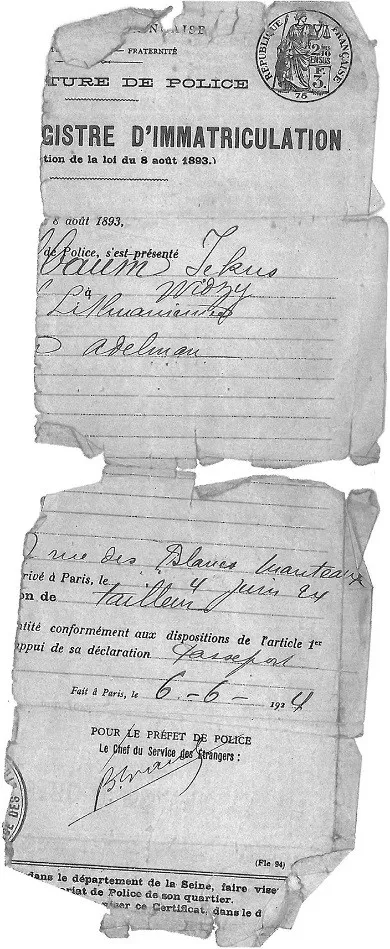 ÇAISE
FRATERNITÉ
TURE DE POLICE
RÉPUBLIQUE FRANÇAISE
2/10 EN SUS
3 F.
78
GISTRE D'IMMATRICULATION
tion de la loi du 8 août 1893.)
8 août 1893,
de Police, s'est présenté
baum Jekus
à Widzy
Lithuanienne
Adelman
rue des Blancs Manteaux
rrivé à Paris, le 4 juin 24
on de tailleur
ntité conformément aux dispositions de l'article 1er
appui de sa déclaration passeport
Fait à Paris, le 6-6- 1924
POUR LE PRÉFET DE POLICE
Le Chef du Service des Étrangers :
DES
(Fle 94)
dans le département de la Seine, faire vise
riat de Police de son quartier.
iser ce Certificat, dans le d